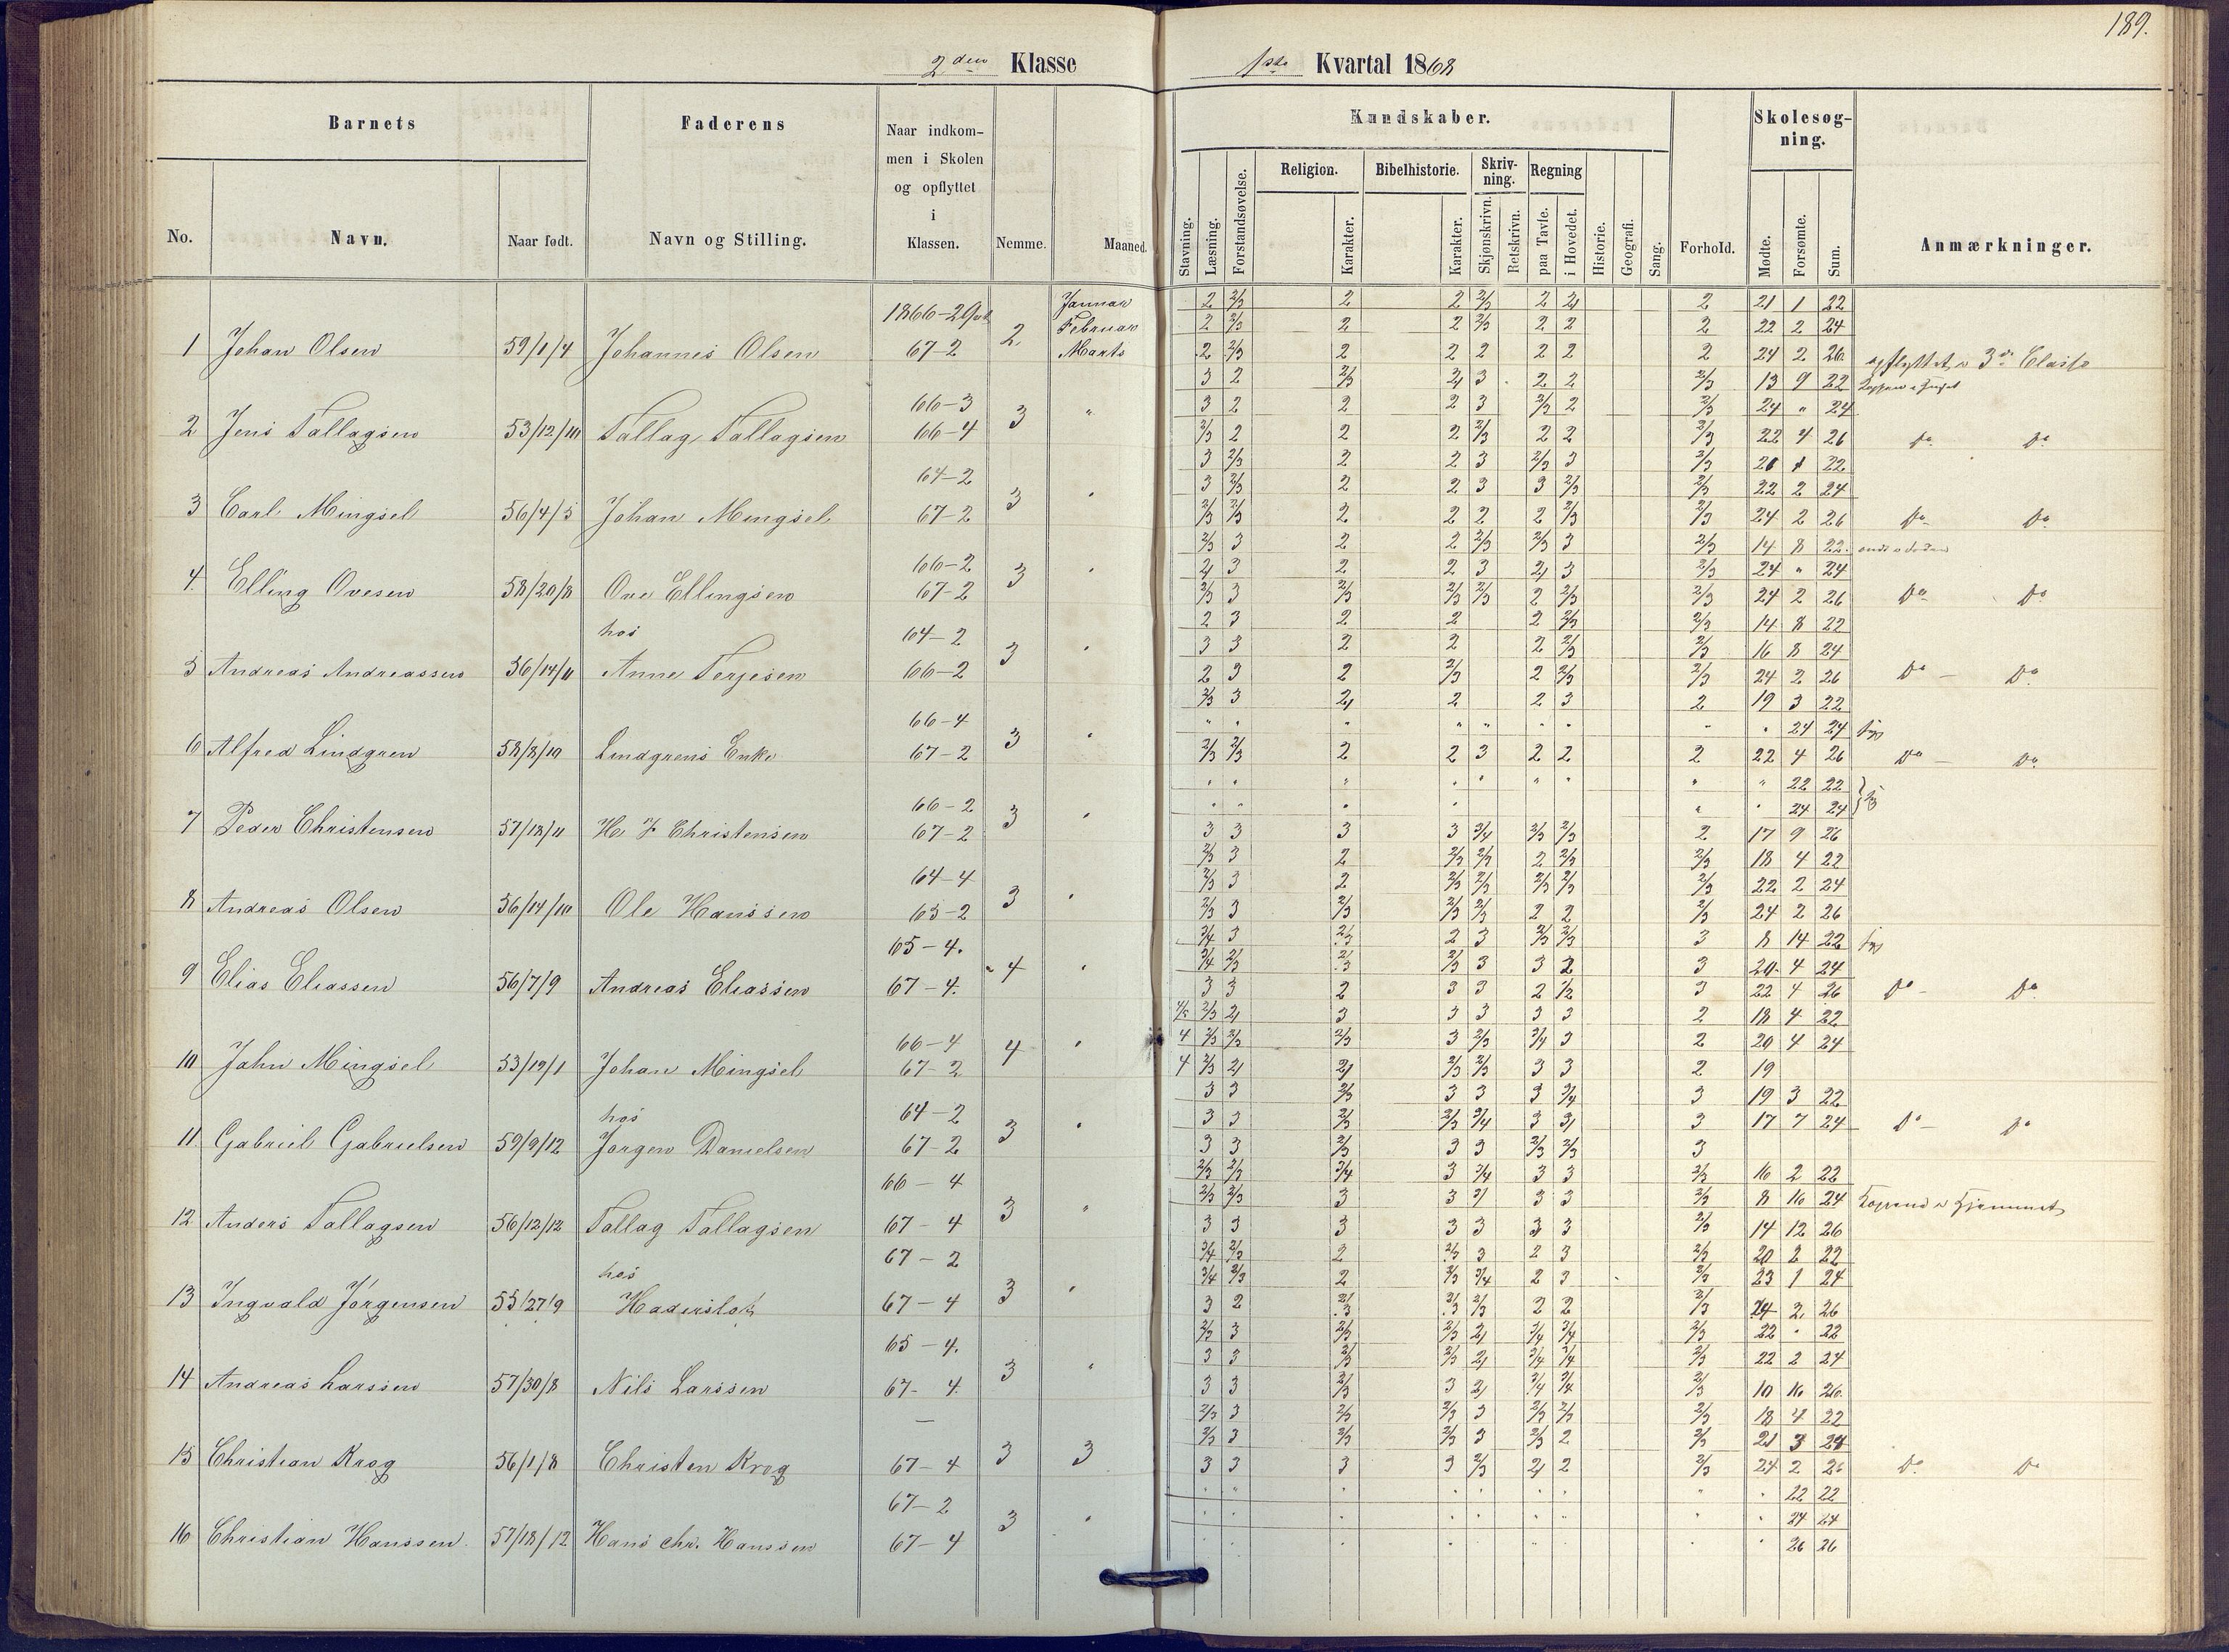 189.
2den Klasse
1ste Kvartal 1868
Barnets
Faderens
Naar indkom-
men i Skolen
og opflyttet
i
Klassen.
Kundskaber.
Skolesøg-
ning.
Religion.
Bibelhistorie.
Skriv-
ning.
Regning
No.
Navn.
Naar født.
Navn og Stilling.
Nemme.
Maaned.
Stavning.
Læsning.
Forstandsøvelse.
Karakter.
Karakter.
Skjønskrivn.
Retskrivn.
paa Tavle.
i Hovedet.
Historie.
Geografi.
Sang.
Forhold.
Mødte.
Forsømte.
Sum.
Anmærkninger.
1866-2 Januar 2 2/3 2 2 2/3 2 2 2 21 1 22
2 Februar 2 2/3 2 2 2/3 2 2 2 22 2 24
1 Johan Olsen 59/1/4 Johannes Olsen 67-2 Marts 2 2/3 2 2 2 2 2 2 24 2 26 opflyttet i 3de Classe
3 2 2/3 2 3 2 2 2/3 13 9 22
66-3 3 " 3 2 2 2 3 2/3 2 2/3 24 " 24
2 Jens Tallagsen 53/12/10 Tallag Tallagsen 66-4 2/3 2 2 2 2/3 2 2 2/3 22 4 26 Do Do
3 2/3 2 2 3 2/3 3 2/3 22
64-2 3 " 3 2/3 2 2 3 3 2/3 2/3 22 2 24
3 Carl Mingsel 56/4/5 Johan Mingsel 67-2 2/3 2/3 2 2 2 2 2/3 2/3 24 2 26 Do Do
2/3 3 2 2 2/3 2/3 3 2/3 14 8 22
66-2 3 " 2 3 2 2 3 2 3 2/3 24 " 24
4. Elling Ovesen 58/20/8 Ove Ellingsen 67-2 2/3 3 2/3 2/3 2/3 2 2/3 2/3 24 2 26 Do Do
hos 2 3 2 2 2 2/3 2/3 14 8 22
64-2 3 " 3 3 2 2 2 2/3 2/3 16 8 24
5 Andreas Andreassen 56/14/11 Anne Terjesen 66-2 2 3 2 2/3 2 2/3 2/3 24 2 26 Do - Do
2/3 3 2 2 2 3 2 19 3 22
66-4 3 " " " " " " " " - " 24 24 syg
6 Alfred Lindgren 58/8/10 Lindgrens Enke 67-2 2/3 2/3 2 2 3 2 2 2 22 4 26 Do - Do
" " " " " " " " " 22 22
66-2 3 " " " " " " " 24 24
7 Peder Christensen 57/18/11 H. J. Christensen 67-2 3 3 3 3 3/4 2/3 2/3 2 17 9 26
2/3 3 2 2/3 2/3 2 2/3 2/3 18 4 22
64-4 3 " 2/3 3 2 2/3 2/3 2/3 2/3 2/3 22 2 24
8 Andreas Olsen 56/14/10 Ole Hanssen 65-2 2/3 3 2/3 2/3 2/3 2 2 2/3 24 2 26
65-4. 3/4 3 2/3 2 3 2/3 2/3 3 8 14 22 syg
4 " 3/4 2/3 2/3 2/3 3 3 2 3 20 4 24
9 Elias Eliassen 56/7/9 Andreas Eliassen 67-4. 3 3 2 3 3 2 1/2 3 22 4 26 Do - Do
4/5 2/3 2 3 3 3 3 3 2 18 4 22
66-4 4 " 4 2/3 2/3 2/3 3 2/3 3/4 3 2 20 4 24
10 John Mingsel 53/19/1 Johan Mingsel 67-2 4 2/3 2 2 2/3 2/3 3 3 2 19
hos 64-2 3 3 2/3 3 3 3 3/4 3 19 3 22
3 " 3 3 2/3 2/3 3/4 3 3 3 17 7 24 Do - Do
11 Gabriel Gabrielsen 59/9/12 Jørgen Danielsen 67-2 3 3 2/3 3 3 2/3 2/3 3
66-4 2/3 2/3 3/4 3 3/4 3 3 2/3 16 2 22
3 " 2/3 2/3 3 3 3 3 3 2/3 8 16 24
12 Anders Tallagsen 56/12/12 Tallag Tallagsen 67-4 3 3 3 3 3 3 3 2/3 14 12 26
67-2 3/4 2/3 2 2/3 3 2 3 2/3 20 2 22
hos 3 " 3/4 2/3 2 2/3 3/4 2 3 2/3 23 1 24
13 Ingvald Jørgensen 55/27/9 67-4 3 2 2/3 2/3 2/3 2 2 2/3 24 2 26
65-4. 2/3 3 2/3 2/3 2 3/4 3/4 2/3 22 " 22
3 " 3 3 2/3 2/3 2 3/4 3/4 2/3 22 2 24
14 Andreas Larssen 57/30/8 Nils Larssen 67-4 3 3 2/3 3 2 3/4 3/4 2/3 10 16 26
— 2/3 3 2/3 2/3 3 2/3 2/3 2/3 18 4 22
3 3 2/3 3 2/3 2/3 3 2/3 2 2/3 21 3 24
15 Christian Krog 56/1/8 Christen Krog 67-4 3 3 3 3 2/3 2 2 2/3 24 2 26 Do Do
67-2 " " " " " " " " " 22 22
3 " " " " " " " " 24 24
16 Christian Hanssen 57/18/12 Hans Chr. Hanssen 67-4 " " " " " 26 26